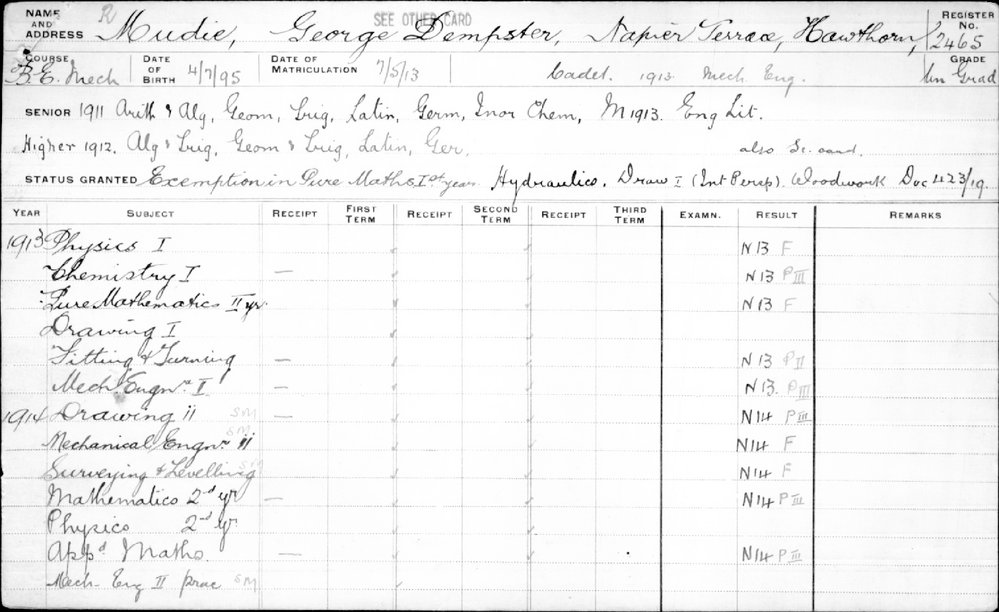 SEE OTHER CARD
NAME AND ADDRESS R Mudie, George Dempster, Napier Terrace, Hawthorn, REGISTER No. 2465
COURSE B.E. Mech DATE OF BIRTH 4/7/95 DATE OF MATRICULATION 7/5/13 Cadet. 1913 Mech Eng. GRADE Un Grad
SENIOR 1911 Arith & Alg, Geom, Trig, Latin, Germ, Inor Chem, M1913. Eng Lit.
Higher 1912. Alg & Trig, Geom & Trig, Latin, Ger. also Sc. cand.
STATUS GRANTED Exemption in Pure Maths Ist year. Hydraulics. Draw I (Int Persp). Woodwork Doc 423/19.
YEAR SUBJECT RECEIPT FIRST TERM RECEIPT SECOND TERM RECEIPT THIRD TERM EXAMN. RESULT REMARKS
1913 Physics I N13 F
Chemistry I — N13 P III
Pure Mathematics II yr N13 F
Drawing I
Fitting & Turning — N13 P II
Mech. Engnr. I — N13. P III
1914 Drawing ii SM — N14 P III
Mechanical Engnr. ii SM N14 F
Surveying & Levelling SM N14 F
Mathematics 2nd yr — N14 P III
Physics 2nd yr
Appd Maths. — N14 P III
Mech. Eng II prac SM